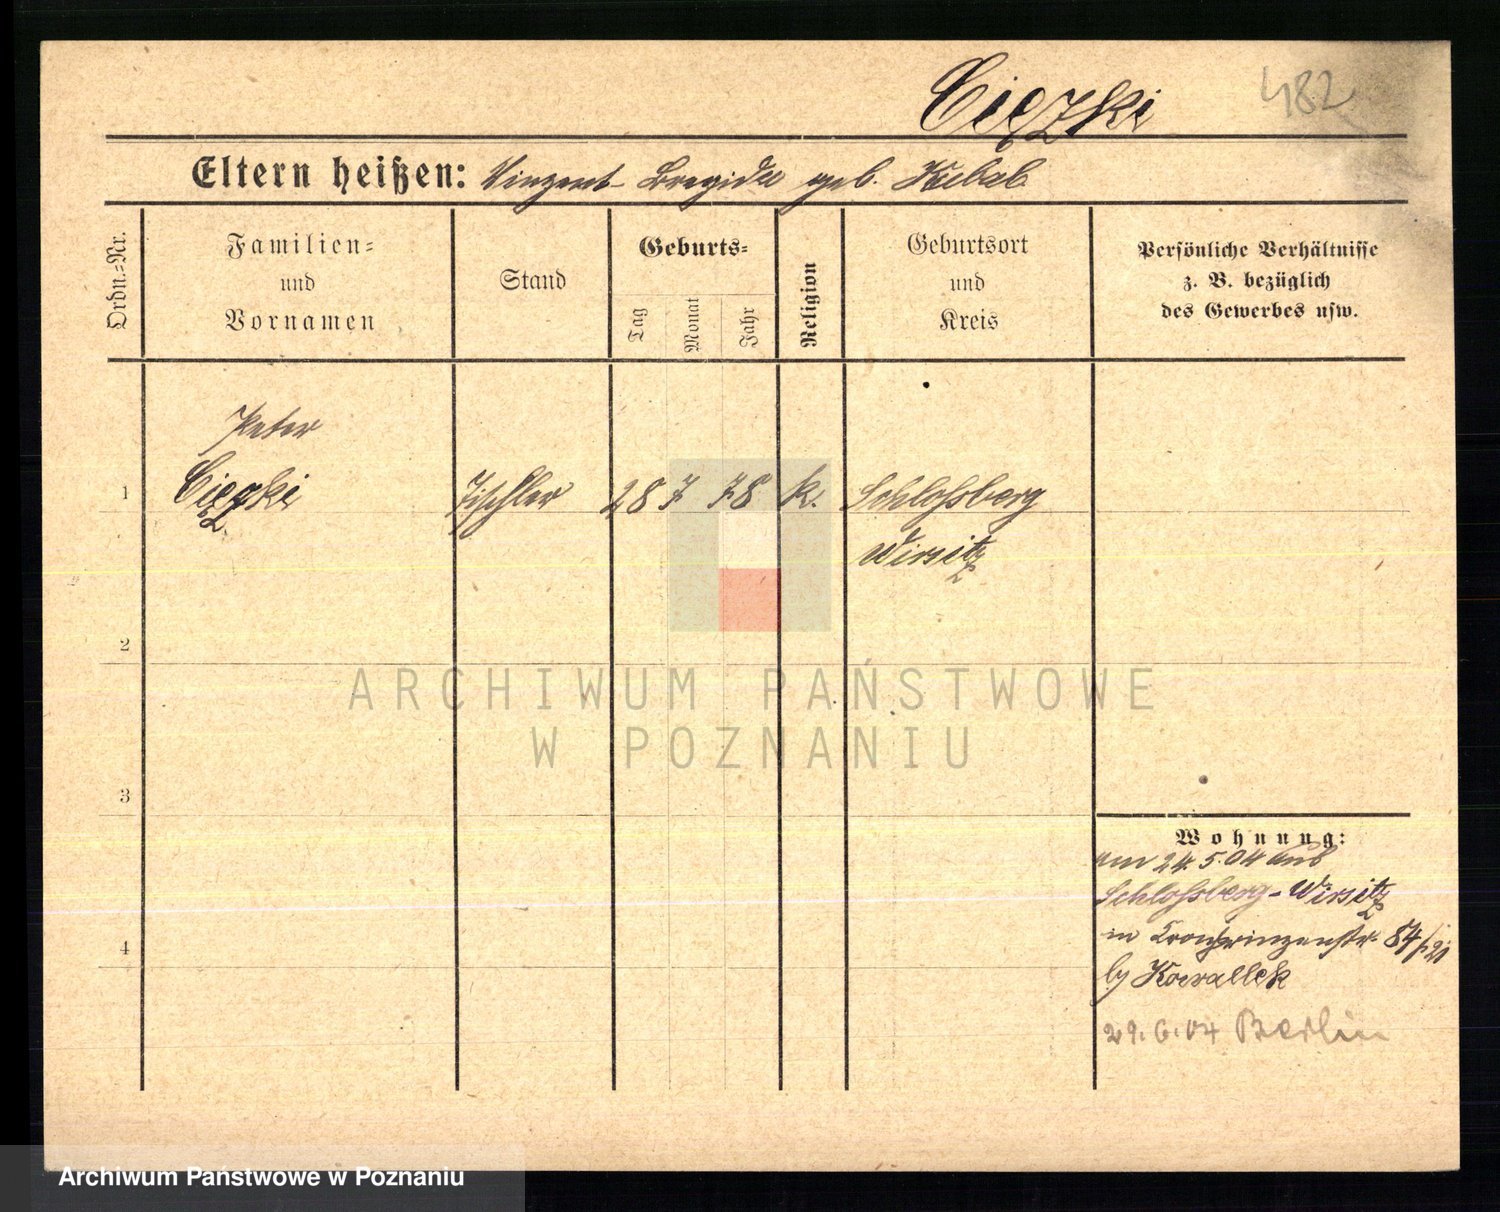 Ciężki 482
Eltern heißen: Vinzent - Bregida geb. Kubab
Ordn.-Nr.
Familien-
und
Vornamen
Stand
Geburts-
Tag
Monat
Jahr
Religion
Geburtsort
und
Kreis
Persönliche Verhältnisse
z. B. bezüglich
des Gewerbes usw.
Peter
1 Ciężki Tischler 28 7 78 k. Schlossberg
Wirsitz
2
ARCHIWUM PAŃSTWOWE
W POZNANIU
3
Wohnung:
am 24.5.04 aus
Schlossberg-Wirsitz
4
in Kronprinzenstr. 84
by Kowallek
29.6.04 Berlin
Archiwum Państwowe w Poznaniu